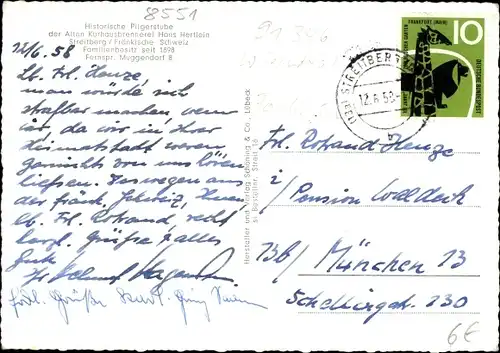 8551
Historische Pilgerstube
der Alten Kurhausbrennerei Hans Hertlein
Streitberg / Fränkische Schweiz
Familienbesitz seit 1898
Fernspr. Muggendorf 8
12/6. 58
Lb. Frl. Henze,
man würde sich
strafbar machen, wenn
wir, da wir in Ihrer
Heimatstadt waren
garnichts von uns hören
liessen. Deswegen aus
der Fränk. Schweiz, Ihnen
lb. Frl. Rotraud, recht
herzl. Grüße, alles
Gute
Ihr Helmut
Herzl. Grüße
Hersteller und Verlag Schöning & Co., Lübeck
STREITBERG
12.6.58
FRANKFURT (MAIN)
10
DEUTSCHE BUNDESPOST
Frl. Rotraud Henze
i/ Pension Walldeck
13b/ München 13
Schellingstr. 130
6€